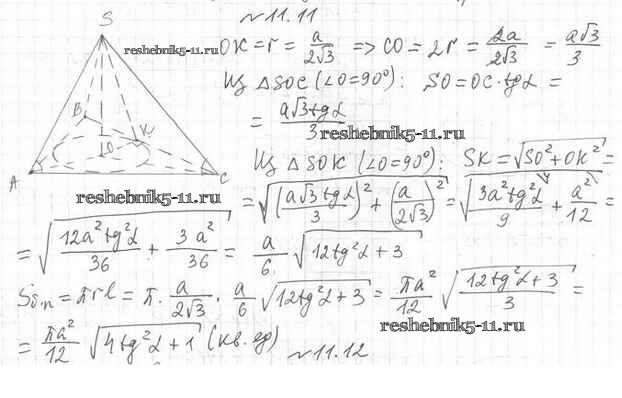 №11.11
S
reshebnik5-11.ru
OK = r = a/(2√3) => CO = 2r = 2a/(2√3) = a√3/3
Из △SOC (∠O=90°): SO = OC·tgα =
B
K
O
= a√3tgα/3
reshebnik5-11.ru
Из △SOK (∠O=90°): SK = √(SO²+OK²) =
A
C
reshebnik5-11.ru
= √((a√3tgα/3)² + (a/(2√3))²) = √(3a²tg²α/9 + a²/12) =
= √(12a²tg²α/36 + 3a²/36) = a/6 √(12tg²α+3)
Sб.п = πrl = π · a/(2√3) · a/6 √(12tg²α+3) = πa²/12 √((12tg²α+3)/3) =
reshebnik5-11.ru
= πa²/12 √(4tg²α+1) (кв. ед)
№11.12